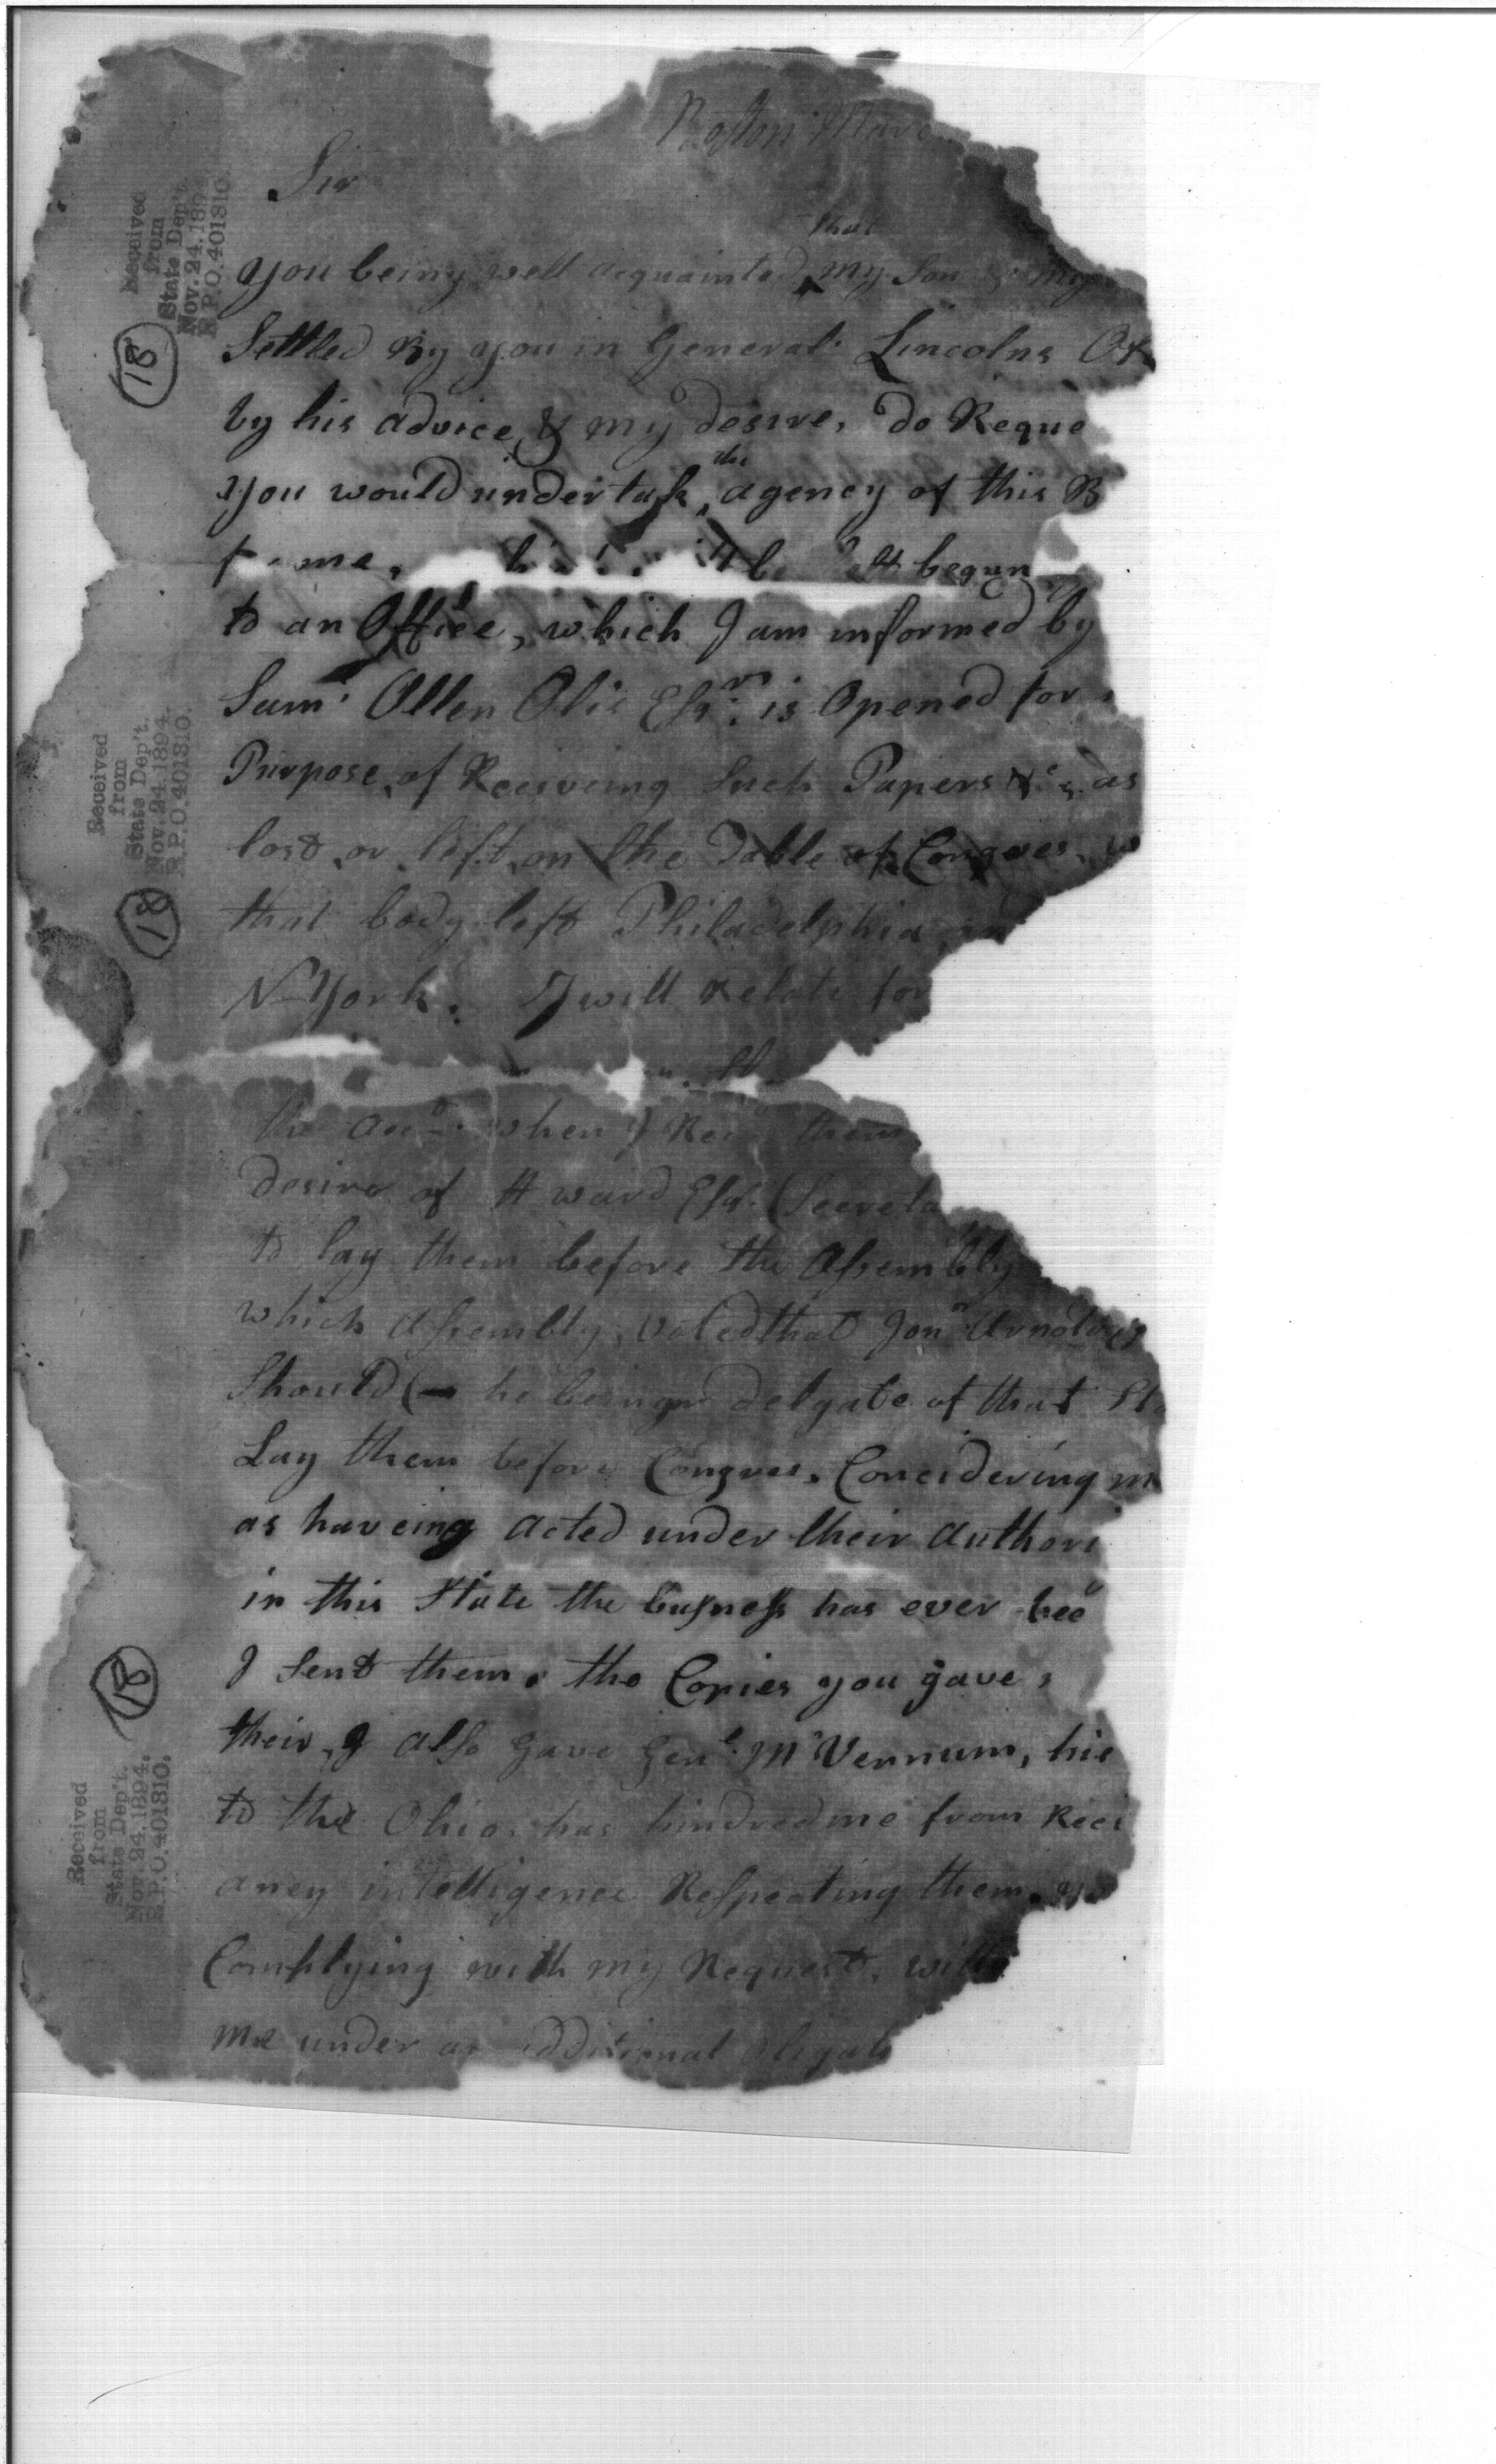 Boston Marc
Sir
that
you being well acquainted my Son & my
Settled By you in General Lincolns Of
by his advice, & my desire, do Reque
the
you would undertak, agency of this B
me, begun
to an Office, which I am informed by
Sam.l Allen Otis Esq.r is Opened for
Purpose, of Receiveing Such Papers &c, as
lost, or left, on the Table of Congres, w
that body left Philadelphia,
N-York. I will Relate for
the acc.t when I Rec.d them
desire of H Ward Esq.r (Secreta
to lay them before the Assembly
which Assembly, voted that Jon.n Arnold
Should (— he being delgate of that Sta
Lay them before Congres, Concidering m
as haveing acted under their Authori
in this State the busness has ever bee
I Sent them, the Copies you gave,
their, I also Gave Gen.l M Vernum, his
to the Ohio, has hindred me from Reci
aney intelligence Respecting them, yo
Complying with my Request, will
me under an additional obligati
Received
from
State Dep't.
Nov. 24. 1894.
R.P.O. 401310.
18
Received
from
State Dep't.
Nov. 24. 1894.
R.P.O. 401310.
18
18
Received
from
State Dep't.
Nov. 24. 1894.
R.P.O. 401310.